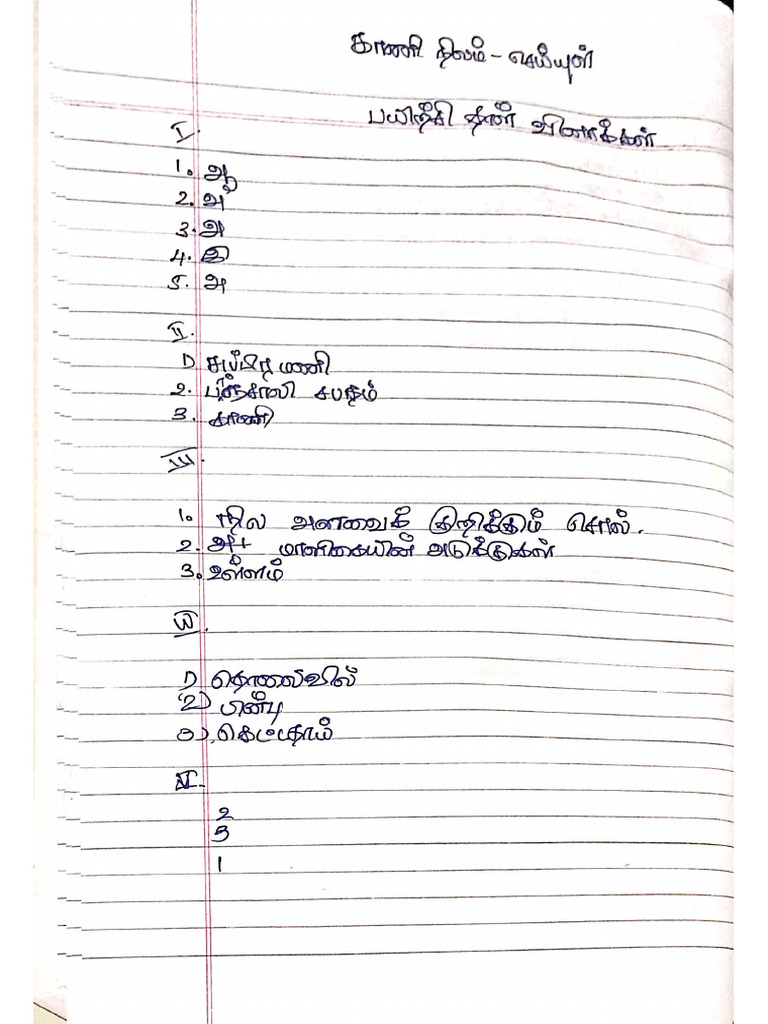 காணி நிலம் - செய்யுள்
பயிற்சி தாள் வினாக்கள்
I.
1. ஆ
2. அ
3. அ
4. இ
5. அ
II.
1) சுப்பிரமணி
2. பாஞ்சாலி சபதம்
3. காணி
III.
1. நில அளவைக் குறிக்கும் சொல்.
2. மாளிகையின் அடுக்குகள்
3. உள்ளம்
IV.
1) தொலைவில்
2)
3)
2
3
1